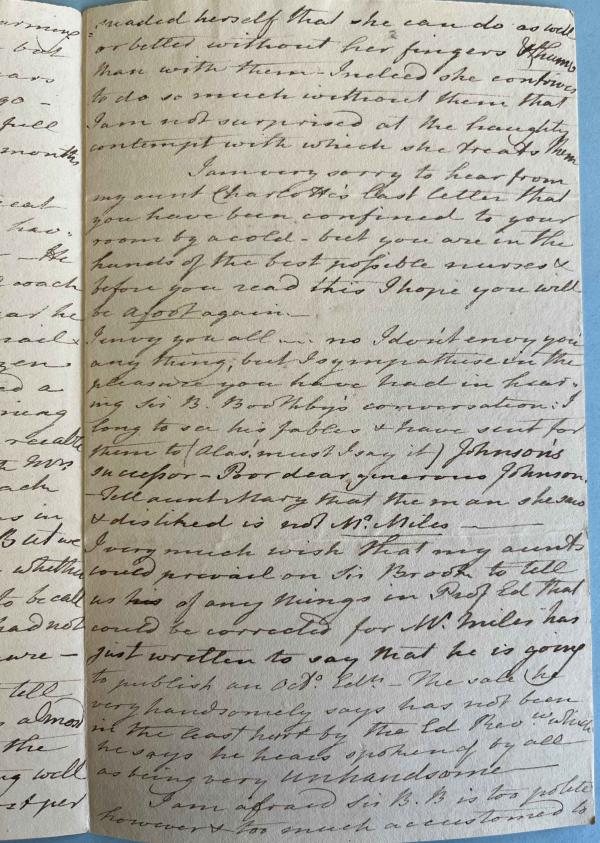 arming
but
ears
go -
full
months
eat
hav-
- He
coach
ear he
rail &
zens
nd a
ning
realite
Mrs
ach
as in
But we
whether
to be call
had not
ure -
tell
almost
the
ng well
per
-suaded herself that she can do as well
or better without her fingers & thumb
than with them - Indeed she contrives
to do so much without them that
I am not surprised at the haughty
contempt with which she treats them
I am very sorry to hear from
my aunt Charlotte's last letter that
you have been confined to your
room by a cold - but you are in the
hands of the best possible nurses &
before you read this I hope you will
be afoot again. -
I envy you all --- no I don't envy you
any thing; but I sympathise in the
pleasure you have had in hear-
ing Sir B. Boothby's conversation: I
long to see his fables & have sent for
them to (Alas! must I say it) Johnson's
successor - Poor dear generous Johnson.
- Tell aunt Mary that the man she saw
& disliked is not Mr. Miles -
I very much wish that my aunts
could prevail on Sir Brook to tell
us of any things in Prof Ed that
could be corrected for Mr. Miles has
just written to say that he is going
to publish an Octo. Edtn. - The sale he
very handsomely says has not been
in the least hurt by the Ed Revw. which
he says he hears spoken of by all
as being very unhandsome -
I am afraid Sir B. B is too polite
however & too much accustomed to